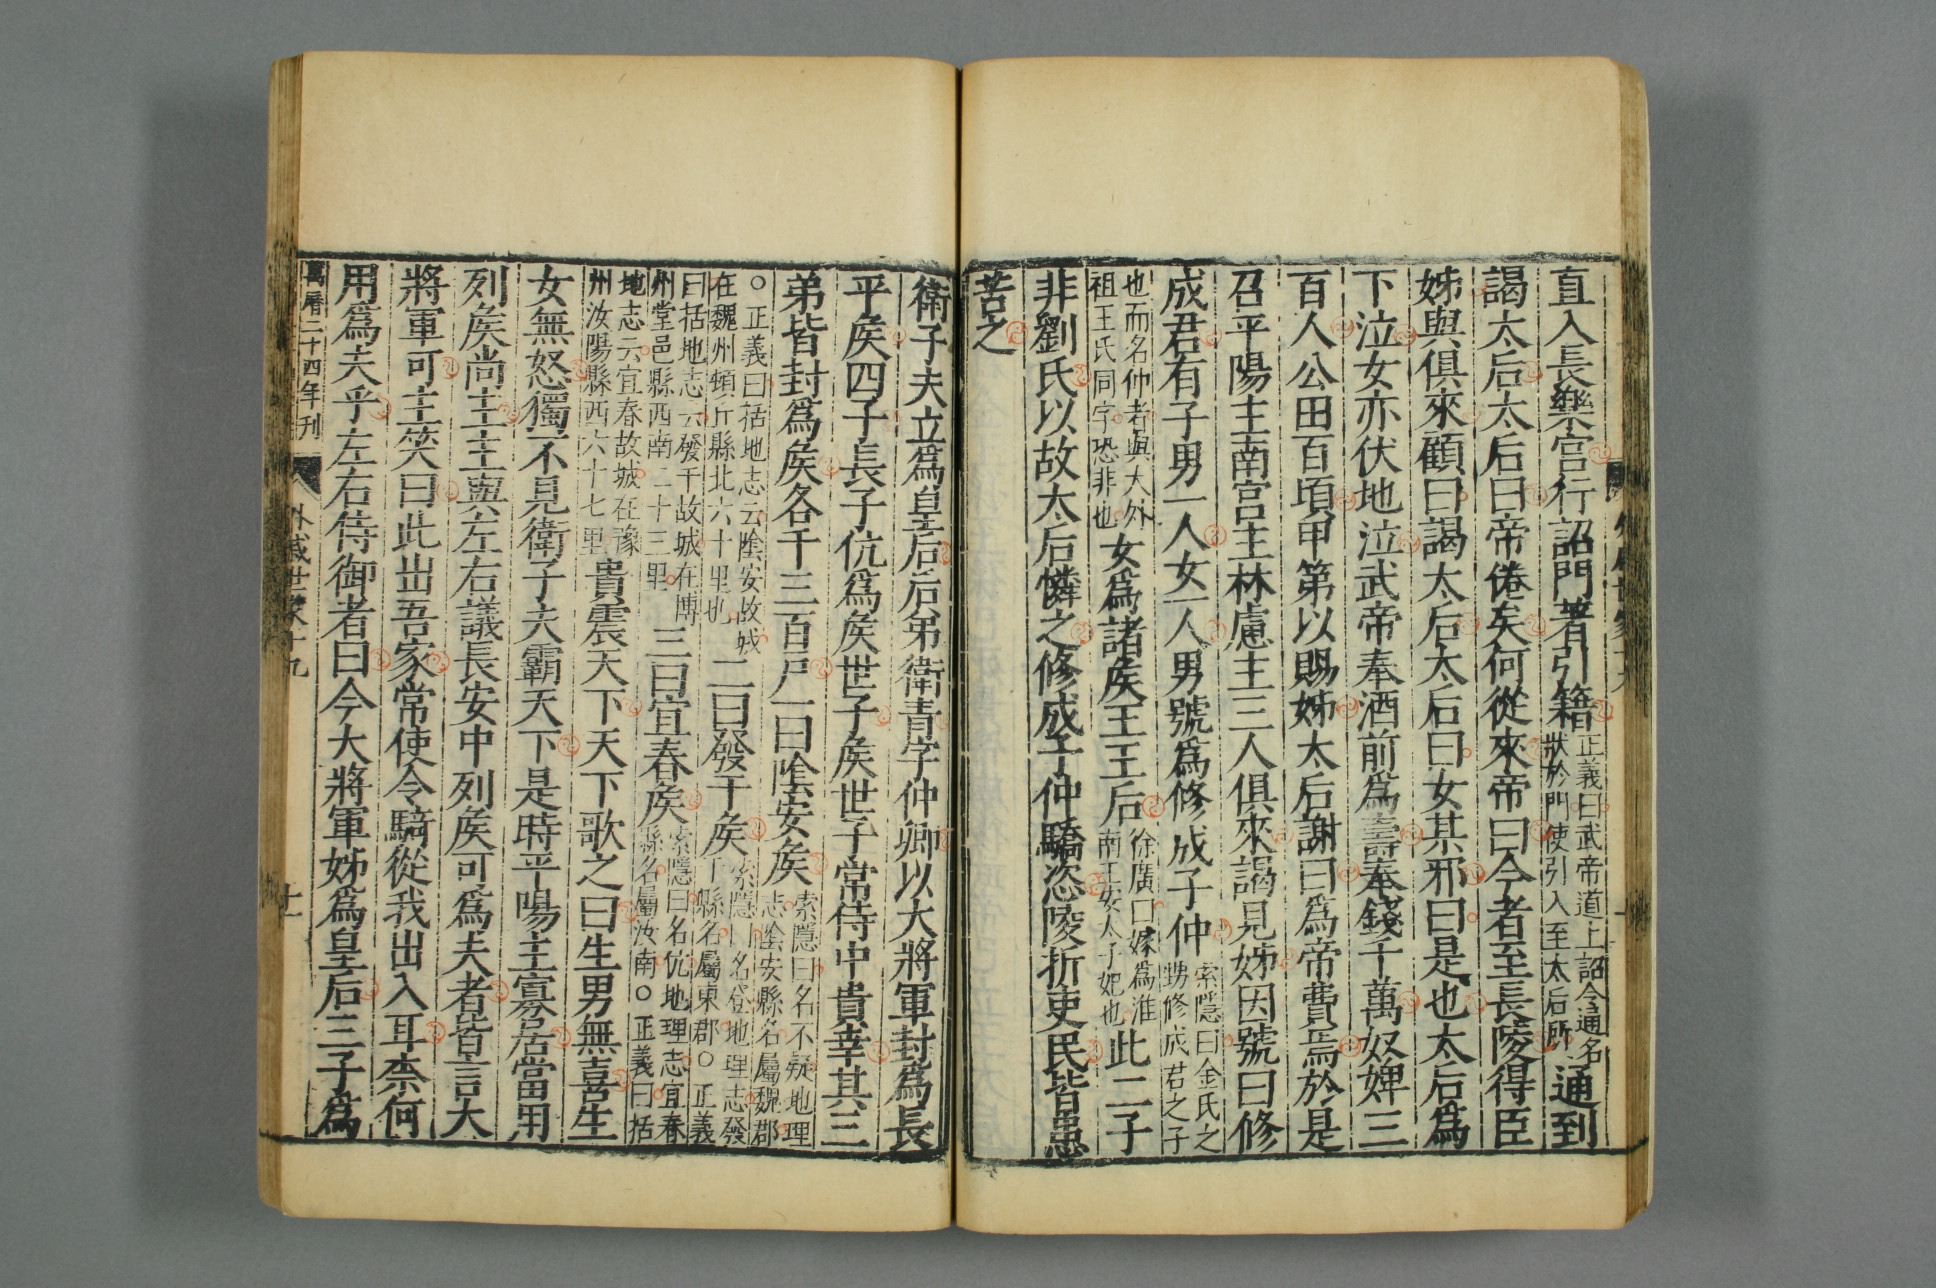 直入長樂宮行詔門著引籍正義曰武帝道上詔令通名狀於門使引入至太后所通到
謁太后太后曰帝倦矣何從來帝曰今者至長陵得臣
姊與俱來顧曰謁太后太后曰女某邪曰是也太后爲
下泣女亦伏地泣武帝奉酒前爲壽奉錢千萬奴婢三
百人公田百頃甲第以賜姊太后謝曰爲帝費焉於是
召平陽主南宮主林慮主三人俱來謁見姊因號曰修
成君有子男一人女一人男號爲修成子仲索隱曰金氏之甥修成君之子
也而名仲者與大外祖王氏同字恐非也女爲諸矦王王后徐廣曰嫁爲淮南王安太子妃也此二子
非劉氏以故太后憐之修成子仲驕恣陵折吏民皆患
苦之
衛子夫立爲皇后后弟衛青字仲卿以大將軍封爲長
平矦四子長子伉爲矦世子矦世子常侍中貴幸其三
弟皆封爲矦各千三百戶一曰陰安矦索隱曰名不疑地理志陰安縣名屬魏郡
○正義曰括地志云陰安故城在魏州頓丘縣北六十里也二曰發干矦索隱曰名登地理志發干縣名屬東郡○正義
曰括地志云發干故城在博州堂邑縣西南二十三里三曰宜春矦索隱曰名伉地理志宜春縣名屬汝南○正義曰括
地志云宜春故城在豫州汝陽縣西六十七里貴震天下天下歌之曰生男無喜生
女無怒獨不見衛子夫霸天下是時平陽主寡居當用
列矦尚主主與左右議長安中列矦可爲夫者皆言大
將軍可主笑曰此出吾家常使令騎從我出入耳柰何
用爲夫乎左右侍御者曰今大將軍姊爲皇后三子爲
萬曆二十四年刊 外戚世家十九 十一